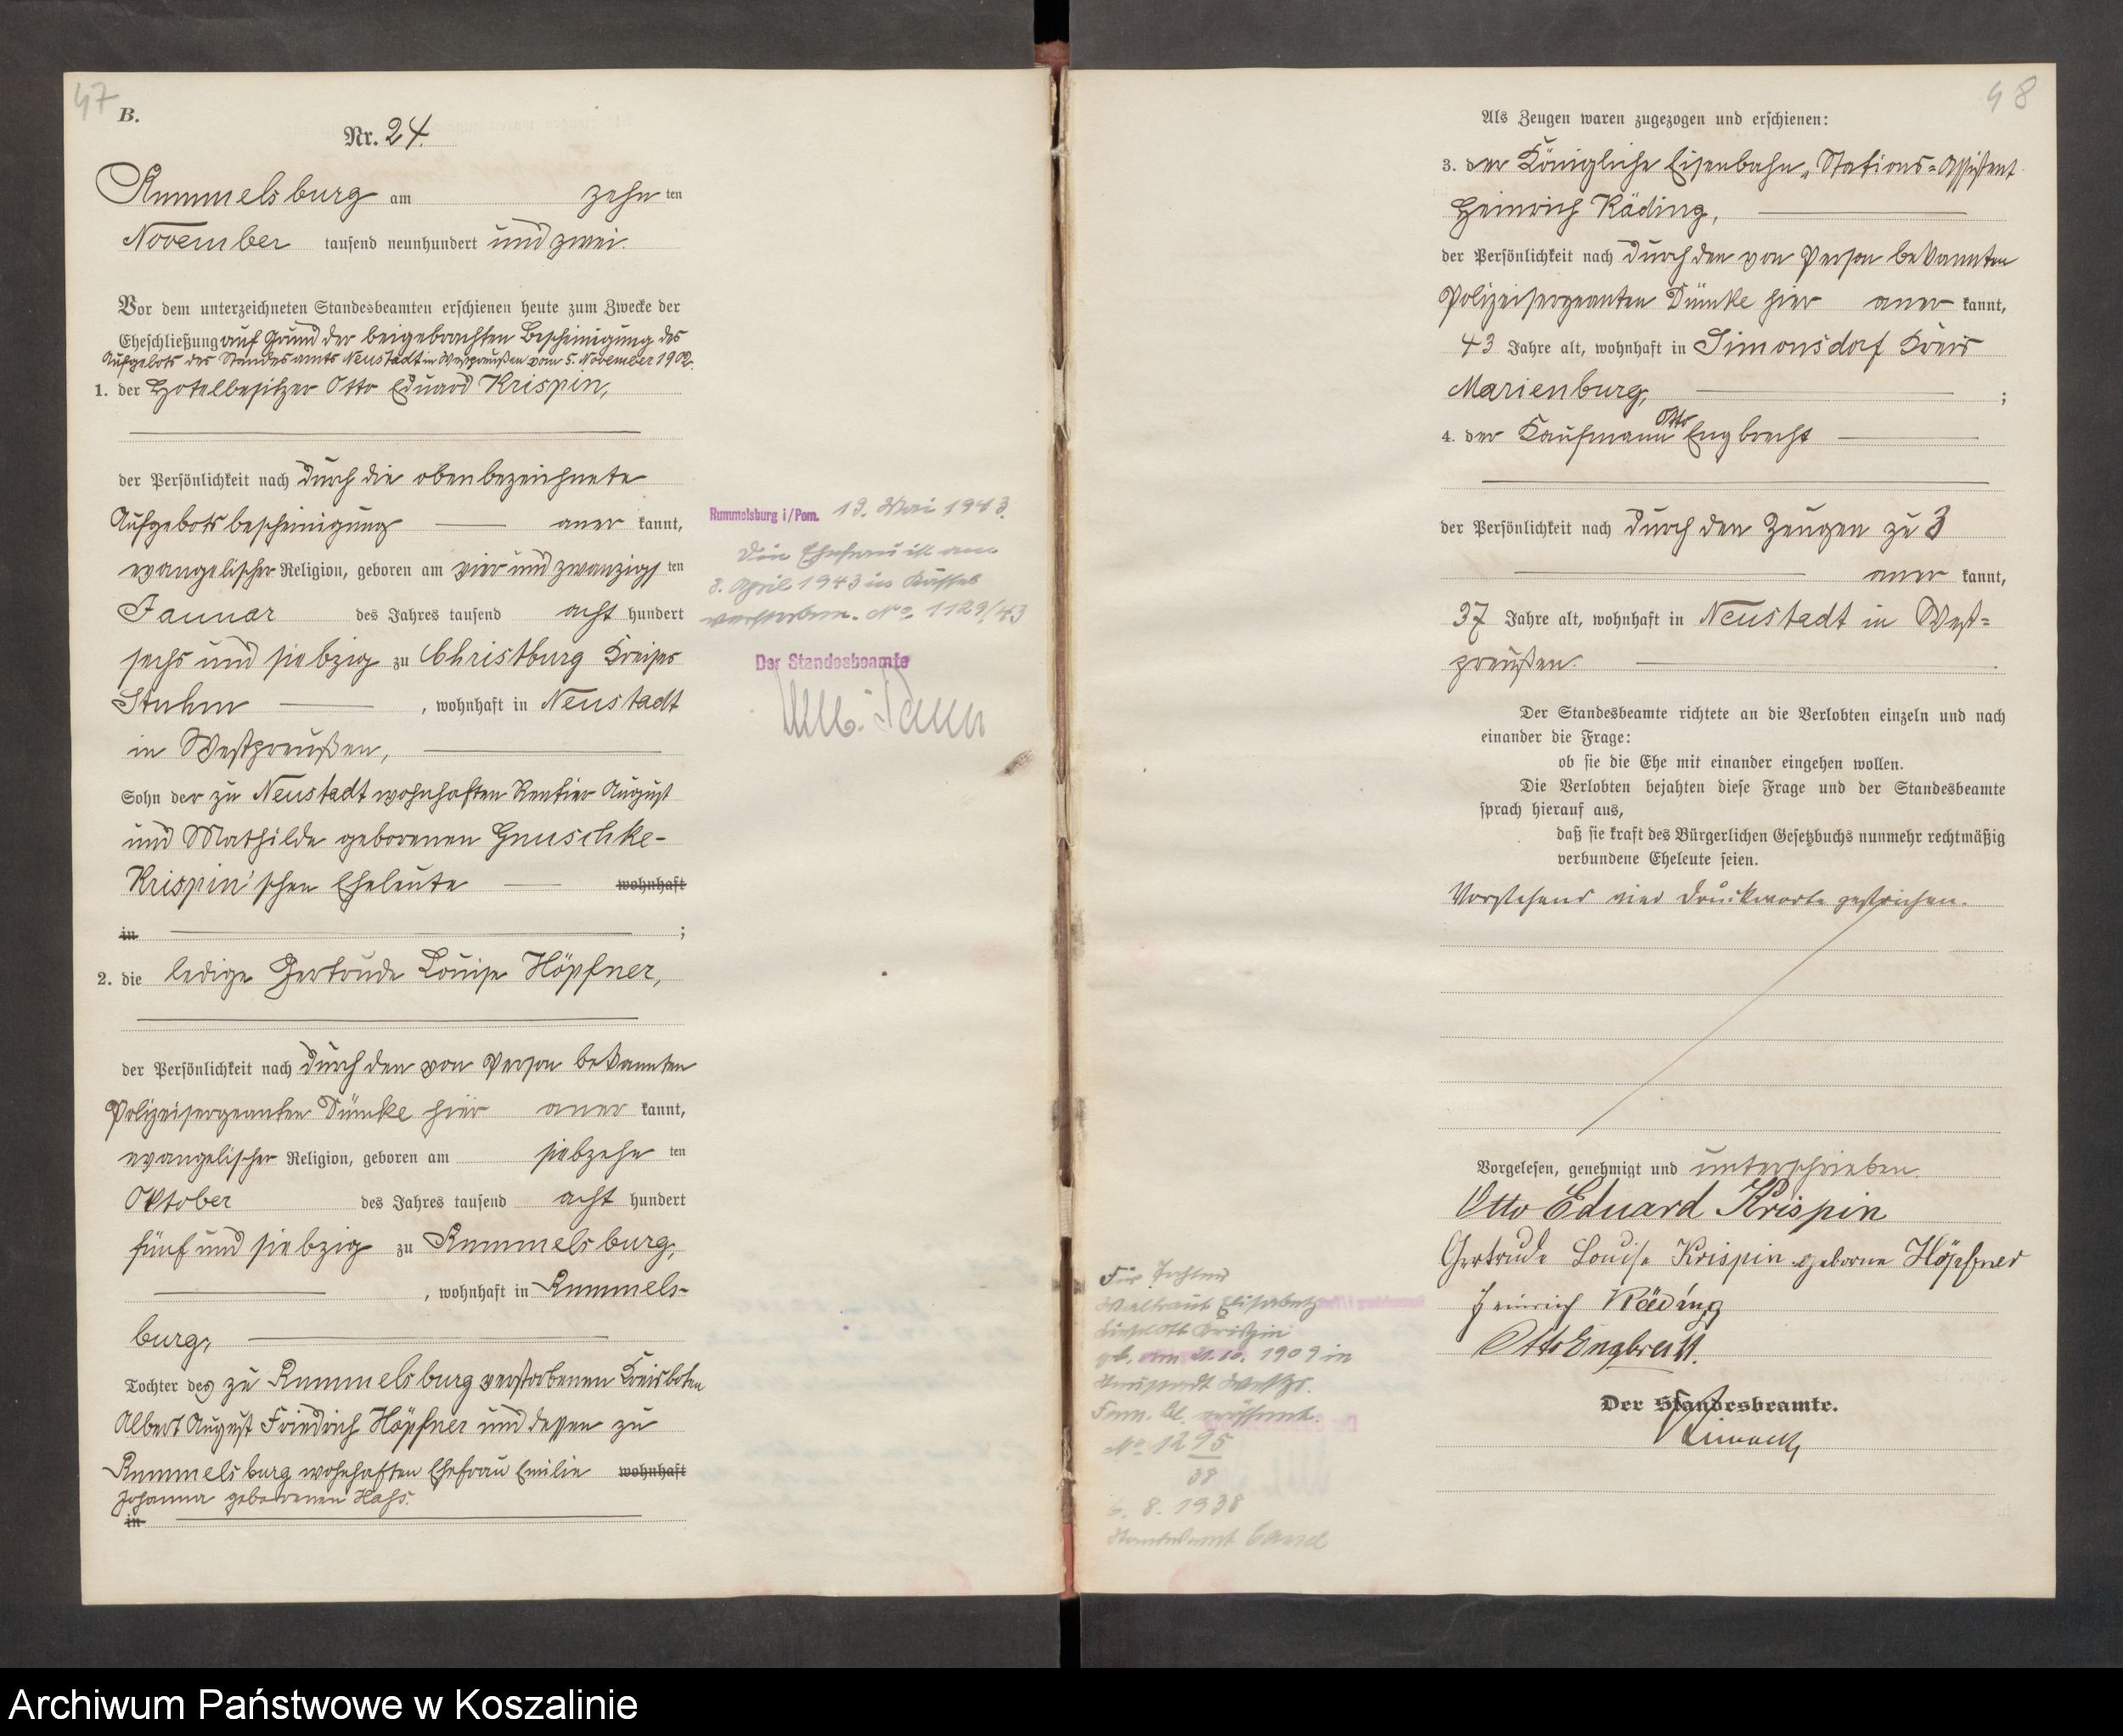 47
B.
Nr. 24.
Rummelsburg am zehn ten
November tausend neunhundert und zwei.
Vor dem unterzeichneten Standesbeamten erschienen heute zum Zwecke der
Eheschließung auf Grund der beigebrachten Bescheinigung des
Aufgebots des Standesamts Neustadt in Westpreußen vom 5. November 1902.
1. der Hotelbesitzer Otto Eduard Krispin,
der Persönlichkeit nach durch die obenbezeichnete
Aufgebotsbescheinigung aner kannt,
evangelischer Religion, geboren am vier und zwanzigs ten
Januar des Jahres tausend acht hundert
sechs und siebzig zu Christburg Kreises
Stuhm , wohnhaft in Neustadt
in Westpreußen,
Sohn der zu Neustadt wohnhaften Rentier August
und Mathilde geborenen Gnuschke-
Krispin'schen Eheleute wohnhaft
in ;
2. die ledige Gertrude Louise Höpfner,
der Persönlichkeit nach durch den von Person bekannten
Polizeisergeanten Dümke hier aner kannt,
evangelischer Religion, geboren am siebzehn ten
Oktober des Jahres tausend acht hundert
fünf und siebzig zu Rummelsburg,
, wohnhaft in Rummels-
burg,
Tochter des zu Rummelsburg verstorbenen Kreisboten
Albert August Friedrich Höpfner und dessen zu
Rummelsburg wohnhaften Ehefrau Emilie wohnhaft
Johanna geborenen Hass.
in
Rummelsburg i/Pom. 19. Mai 1943.
Die Ehefrau ist am
8. April 1943 in Kassel
verstorben. No. 1129/43
Der Standesbeamte
48
Als Zeugen waren zugezogen und erschienen:
3. der Königliche Eisenbahn-Stations-Assistent
Heinrich Käding,
der Persönlichkeit nach durch den von Person bekannten
Polizeisergeanten Dümke hier aner kannt,
43 Jahre alt, wohnhaft in Simonsdorf Kreis
Marienburg, ;
4. der Kaufmann Otto Engbrecht
der Persönlichkeit nach durch den Zeugen zu 3
aner kannt,
37 Jahre alt, wohnhaft in Neustadt in West-
preußen.
Der Standesbeamte richtete an die Verlobten einzeln und nach
einander die Frage:
ob sie die Ehe mit einander eingehen wollen.
Die Verlobten bejahten diese Frage und der Standesbeamte
sprach hierauf aus,
daß sie kraft des Bürgerlichen Gesetzbuchs nunmehr rechtmäßig
verbundene Eheleute seien.
Vorstehend vier Druckworte gestrichen.
Vorgelesen, genehmigt und unterschrieben.
Otto Eduard Krispin
Gertrude Louise Krispin geborene Höpfner
Heinrich Käding
Otto Engbrecht.
Der Standesbeamte.
Für Tochter
Waltraut Elisabeth
Lieselott Krispin
geb. am 21.10. 1909 in
Neustadt Westpr.
Fam. Bl. eröffnet.
No 1295
38
6. 8. 1938
Standesamt
Archiwum Państwowe w Koszalinie